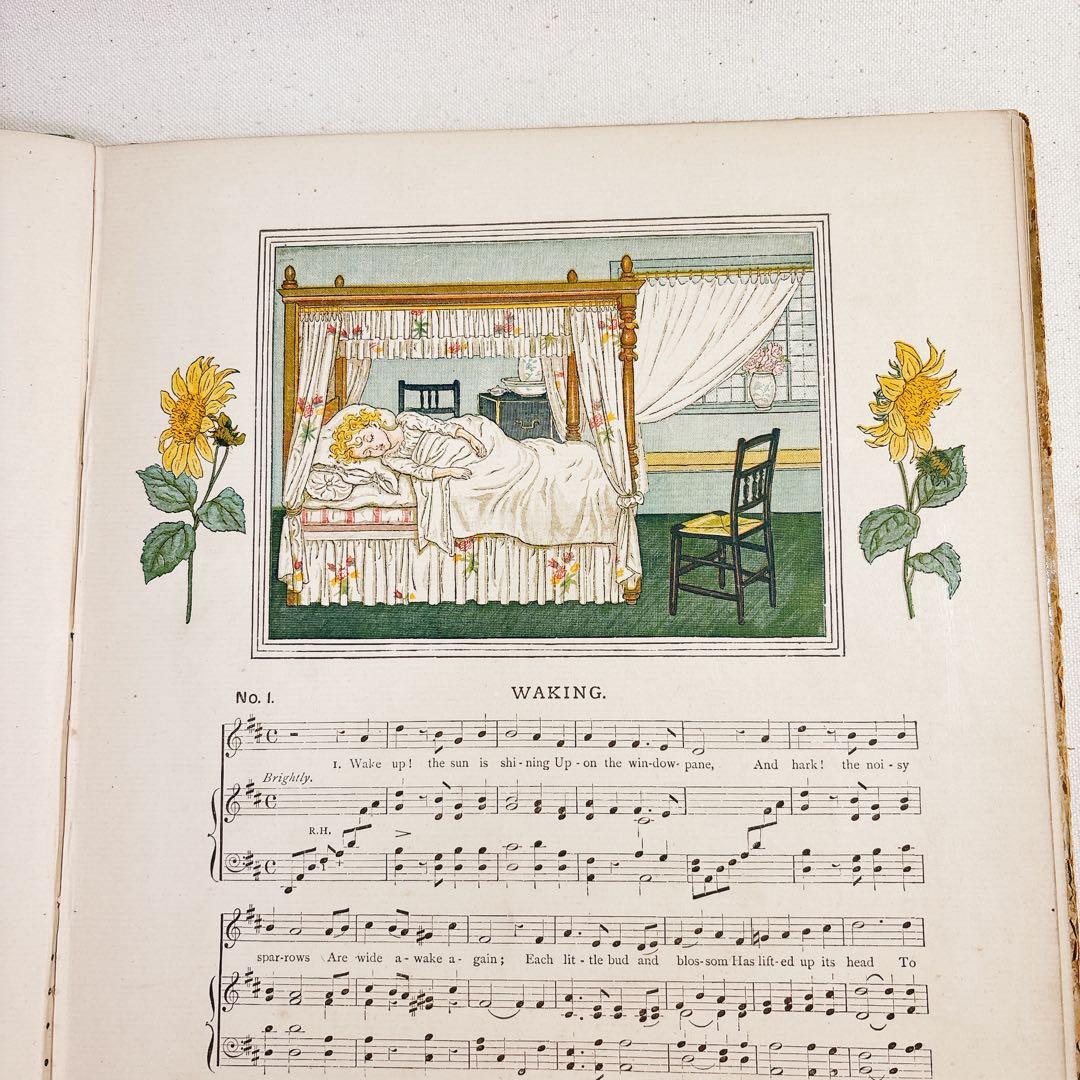 No. 1.
WAKING.
1. Wake up! the sun is shi-ning Up-on the win-dow-pane, And hark! the noi-sy
Brightly.
R.H.
spar-rows Are wide a-wake a-gain; Each lit-tle bud and blos-som Has lift-ed up its head To